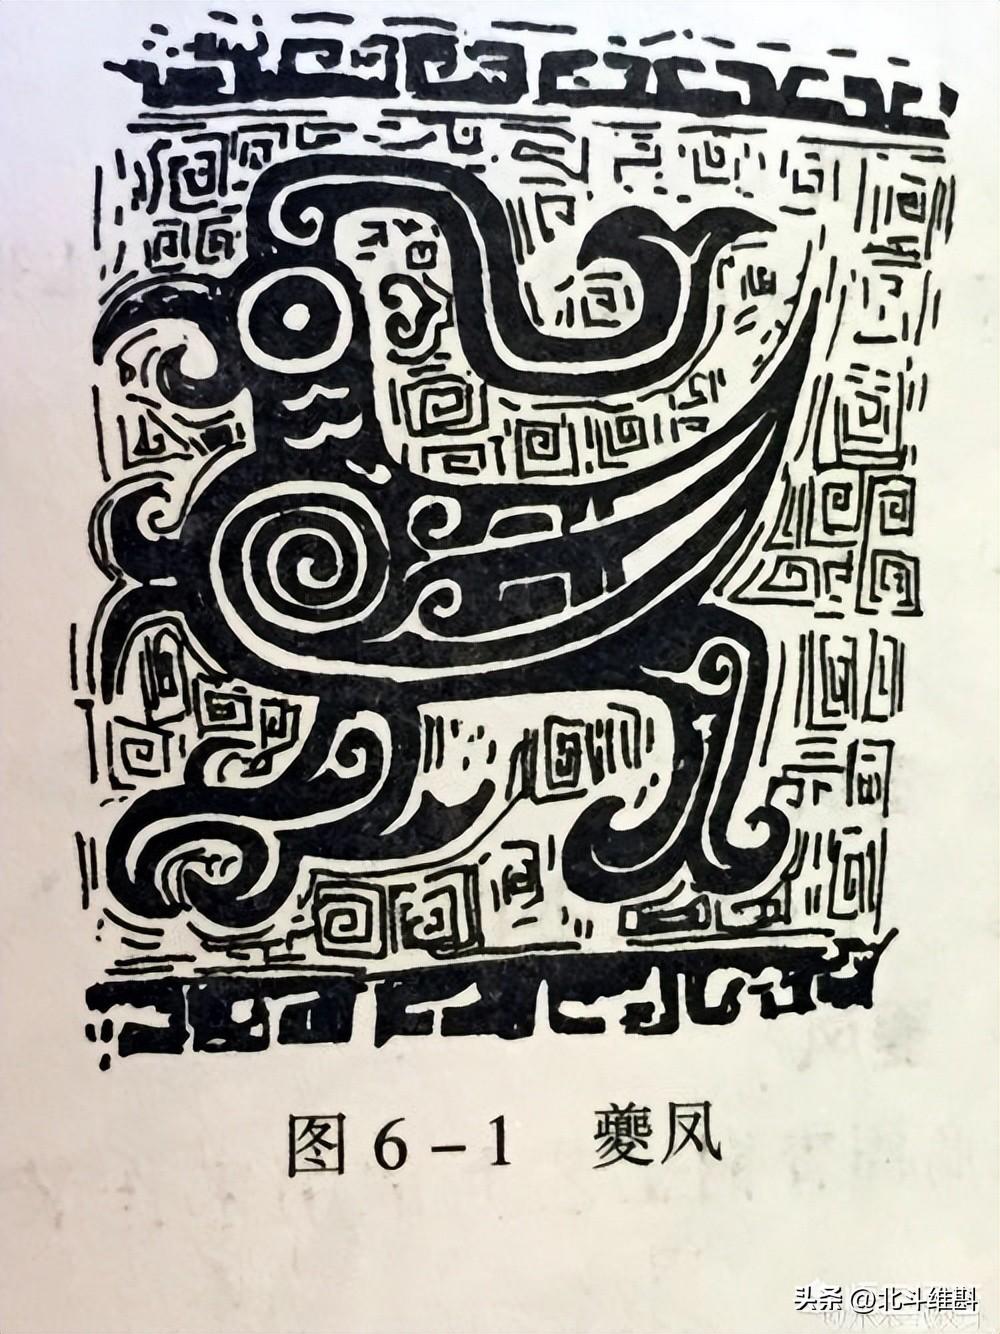 图6-1 夔凤
头条 @北斗维斟